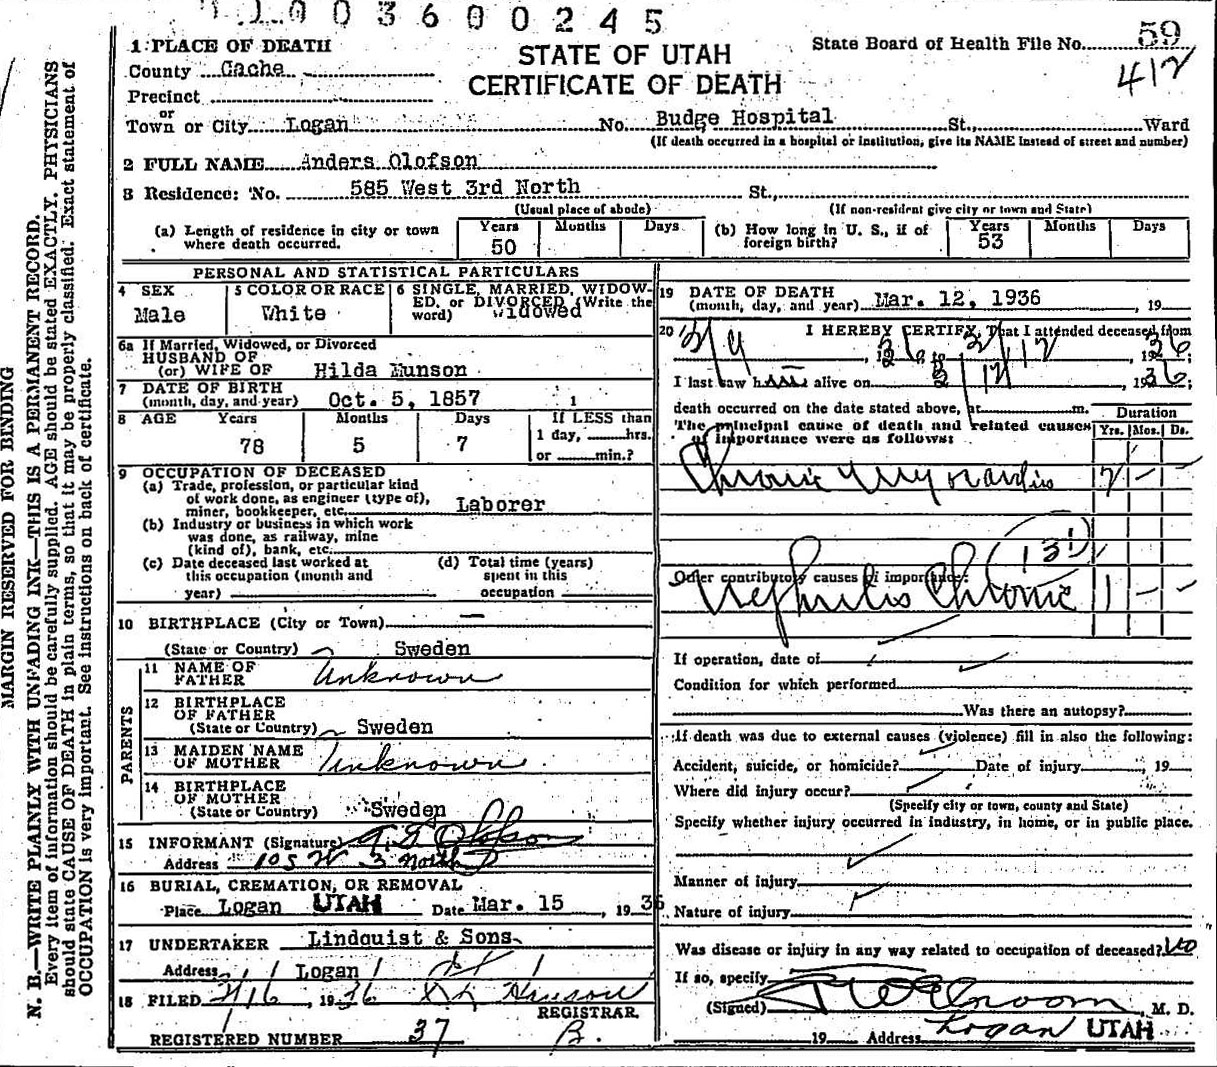 003600245
1 PLACE OF DEATH
STATE OF UTAH
CERTIFICATE OF DEATH
State Board of Health File No. 59
412
County Cache
Precinct
or
Town or City Logan No. Budge Hospital St., Ward
(If death occurred in a hospital or institution, give its NAME instead of street and number)
2 FULL NAME Anders Olofson
3 Residence: No. 585 West 3rd North St.,
(Usual place of abode) (If non-resident give city or town and State)
(a) Length of residence in city or town where death occurred. Years 50 Months Days
(b) How long in U. S., if of foreign birth? Years 53 Months Days
PERSONAL AND STATISTICAL PARTICULARS
4 SEX Male
5 COLOR OR RACE White
6 SINGLE, MARRIED, WIDOWED, or DIVORCED (Write the word) widowed
6a If Married, Widowed, or Divorced
HUSBAND OF
(or) WIFE OF Hilda Munson
7 DATE OF BIRTH
(month, day, and year) Oct. 5, 1857
8 AGE Years 78 Months 5 Days 7
If LESS than
1 day, hrs.
or min.?
9 OCCUPATION OF DECEASED
(a) Trade, profession, or particular kind
of work done, as engineer (type of),
miner, bookkeeper, etc. Laborer
(b) Industry or business in which work
was done, as railway, mine
(kind of), bank, etc.
(c) Date deceased last worked at
this occupation (month and
year)
(d) Total time (years)
spent in this
occupation
10 BIRTHPLACE (City or Town)
(State or Country) Sweden
PARENTS
11 NAME OF
FATHER Unknown
12 BIRTHPLACE
OF FATHER
(State or Country) Sweden
13 MAIDEN NAME
OF MOTHER Unknown
14 BIRTHPLACE
OF MOTHER
(State or Country) Sweden
15 INFORMANT (Signature)
Address 105 W 3 North
16 BURIAL, CREMATION, OR REMOVAL
Place Logan UTAH Date Mar. 15, 1936
17 UNDERTAKER Lindquist & Sons
Address Logan
18 FILED 3/16, 1936
REGISTRAR.
REGISTERED NUMBER 37 B.
19 DATE OF DEATH
(month, day, and year) Mar. 12, 1936, 19
20 I HEREBY CERTIFY, That I attended deceased from
3/9, 1936 to 3/12, 1936;
I last saw h alive on 3/12, 1936;
death occurred on the date stated above, at m.
The principal cause of death and related causes
of importance were as follows:
Duration
Yrs. Mos. Ds.
Chronic Myocarditis 2 - -
131
Other contributory causes of importance:
Nephritis Chronic 1 - -
If operation, date of
Condition for which performed
Was there an autopsy?
If death was due to external causes (violence) fill in also the following:
Accident, suicide, or homicide? Date of injury, 19
Where did injury occur?
(Specify city or town, county and State)
Specify whether injury occurred in industry, in home, or in public place.
Manner of injury
Nature of injury
Was disease or injury in any way related to occupation of deceased? no
If so, specify
(Signed) M. D.
19 Address Logan UTAH
MARGIN RESERVED FOR BINDING
N. B.—WRITE PLAINLY WITH UNFADING INK—THIS IS A PERMANENT RECORD.
Every item of information should be carefully supplied. AGE should be stated EXACTLY. PHYSICIANS
should state CAUSE OF DEATH in plain terms, so that it may be properly classified. Exact statement of
OCCUPATION is very important. See instructions on back of certificate.